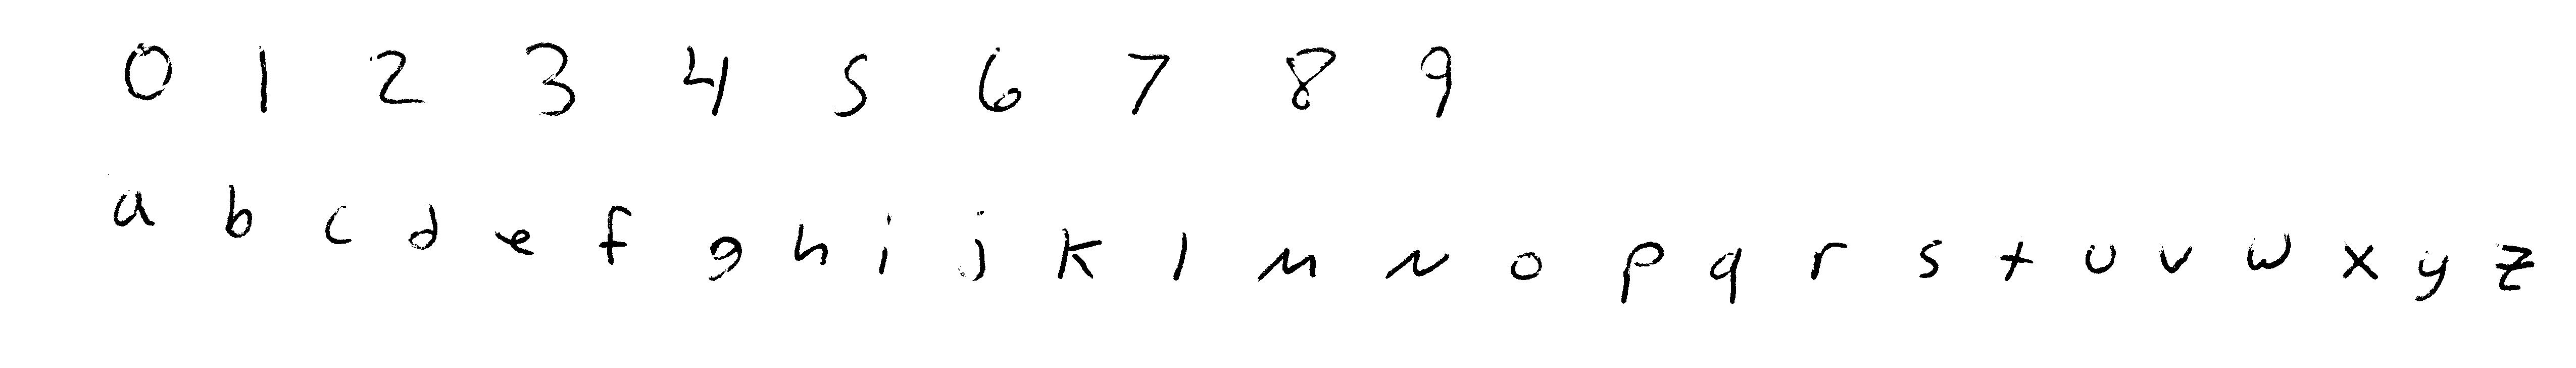 0 1 2 3 4 5 6 7 8 9
a b c d e f g h i j k l m n o p q r s t u v w x y z